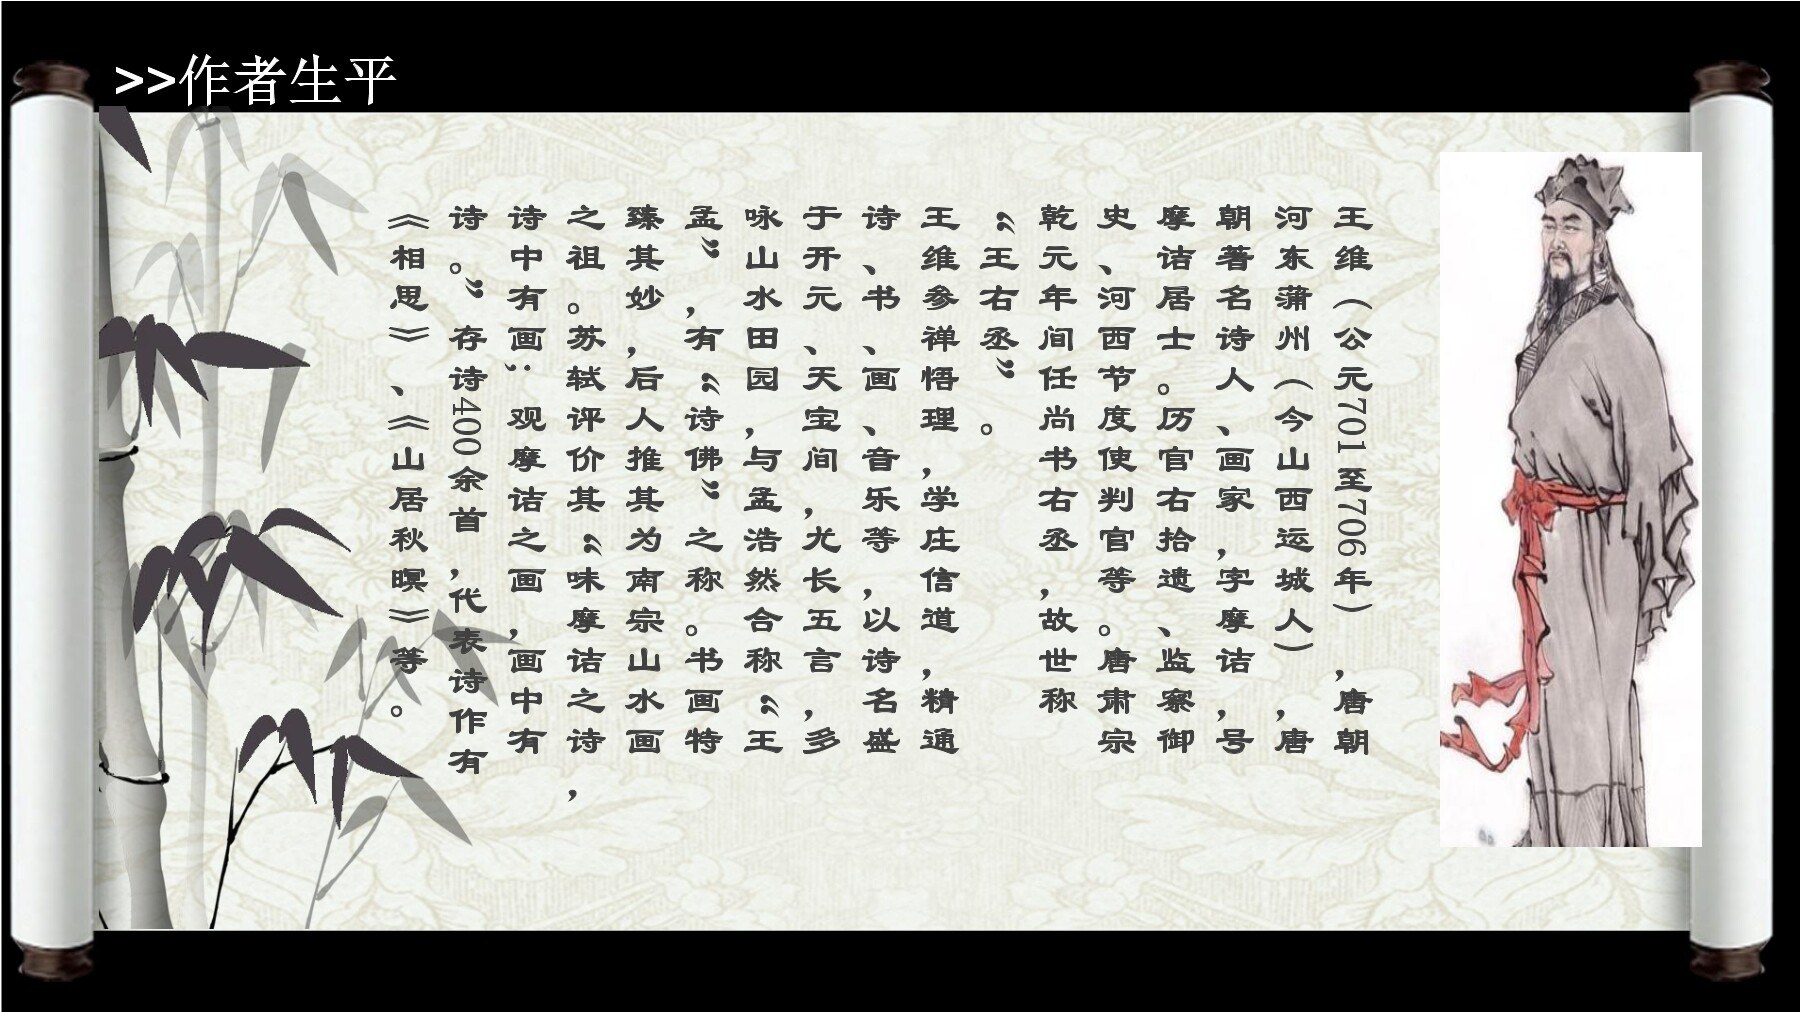 >>作者生平
王维（公元701至706年），唐朝
河东蒲州（今山西运城人），唐
朝著名诗人、画家，字摩诘，号
摩诘居士。历官右拾遗、监察御
史、河西节度使判官等。唐肃宗
乾元年间任尚书右丞，故世称
“王右丞”。
王维参禅悟理，学庄信道，精通
诗、书、画、音乐等，以诗名盛
于开元、天宝间，尤长五言，多
咏山水田园，与孟浩然合称“王
孟”，有“诗佛”之称。书画特
臻其妙，后人推其为南宗山水画
之祖。苏轼评价其“味摩诘之诗，
诗中有画；观摩诘之画，画中有
诗。”存诗400余首，代表诗作有
《相思》、《山居秋暝》等。